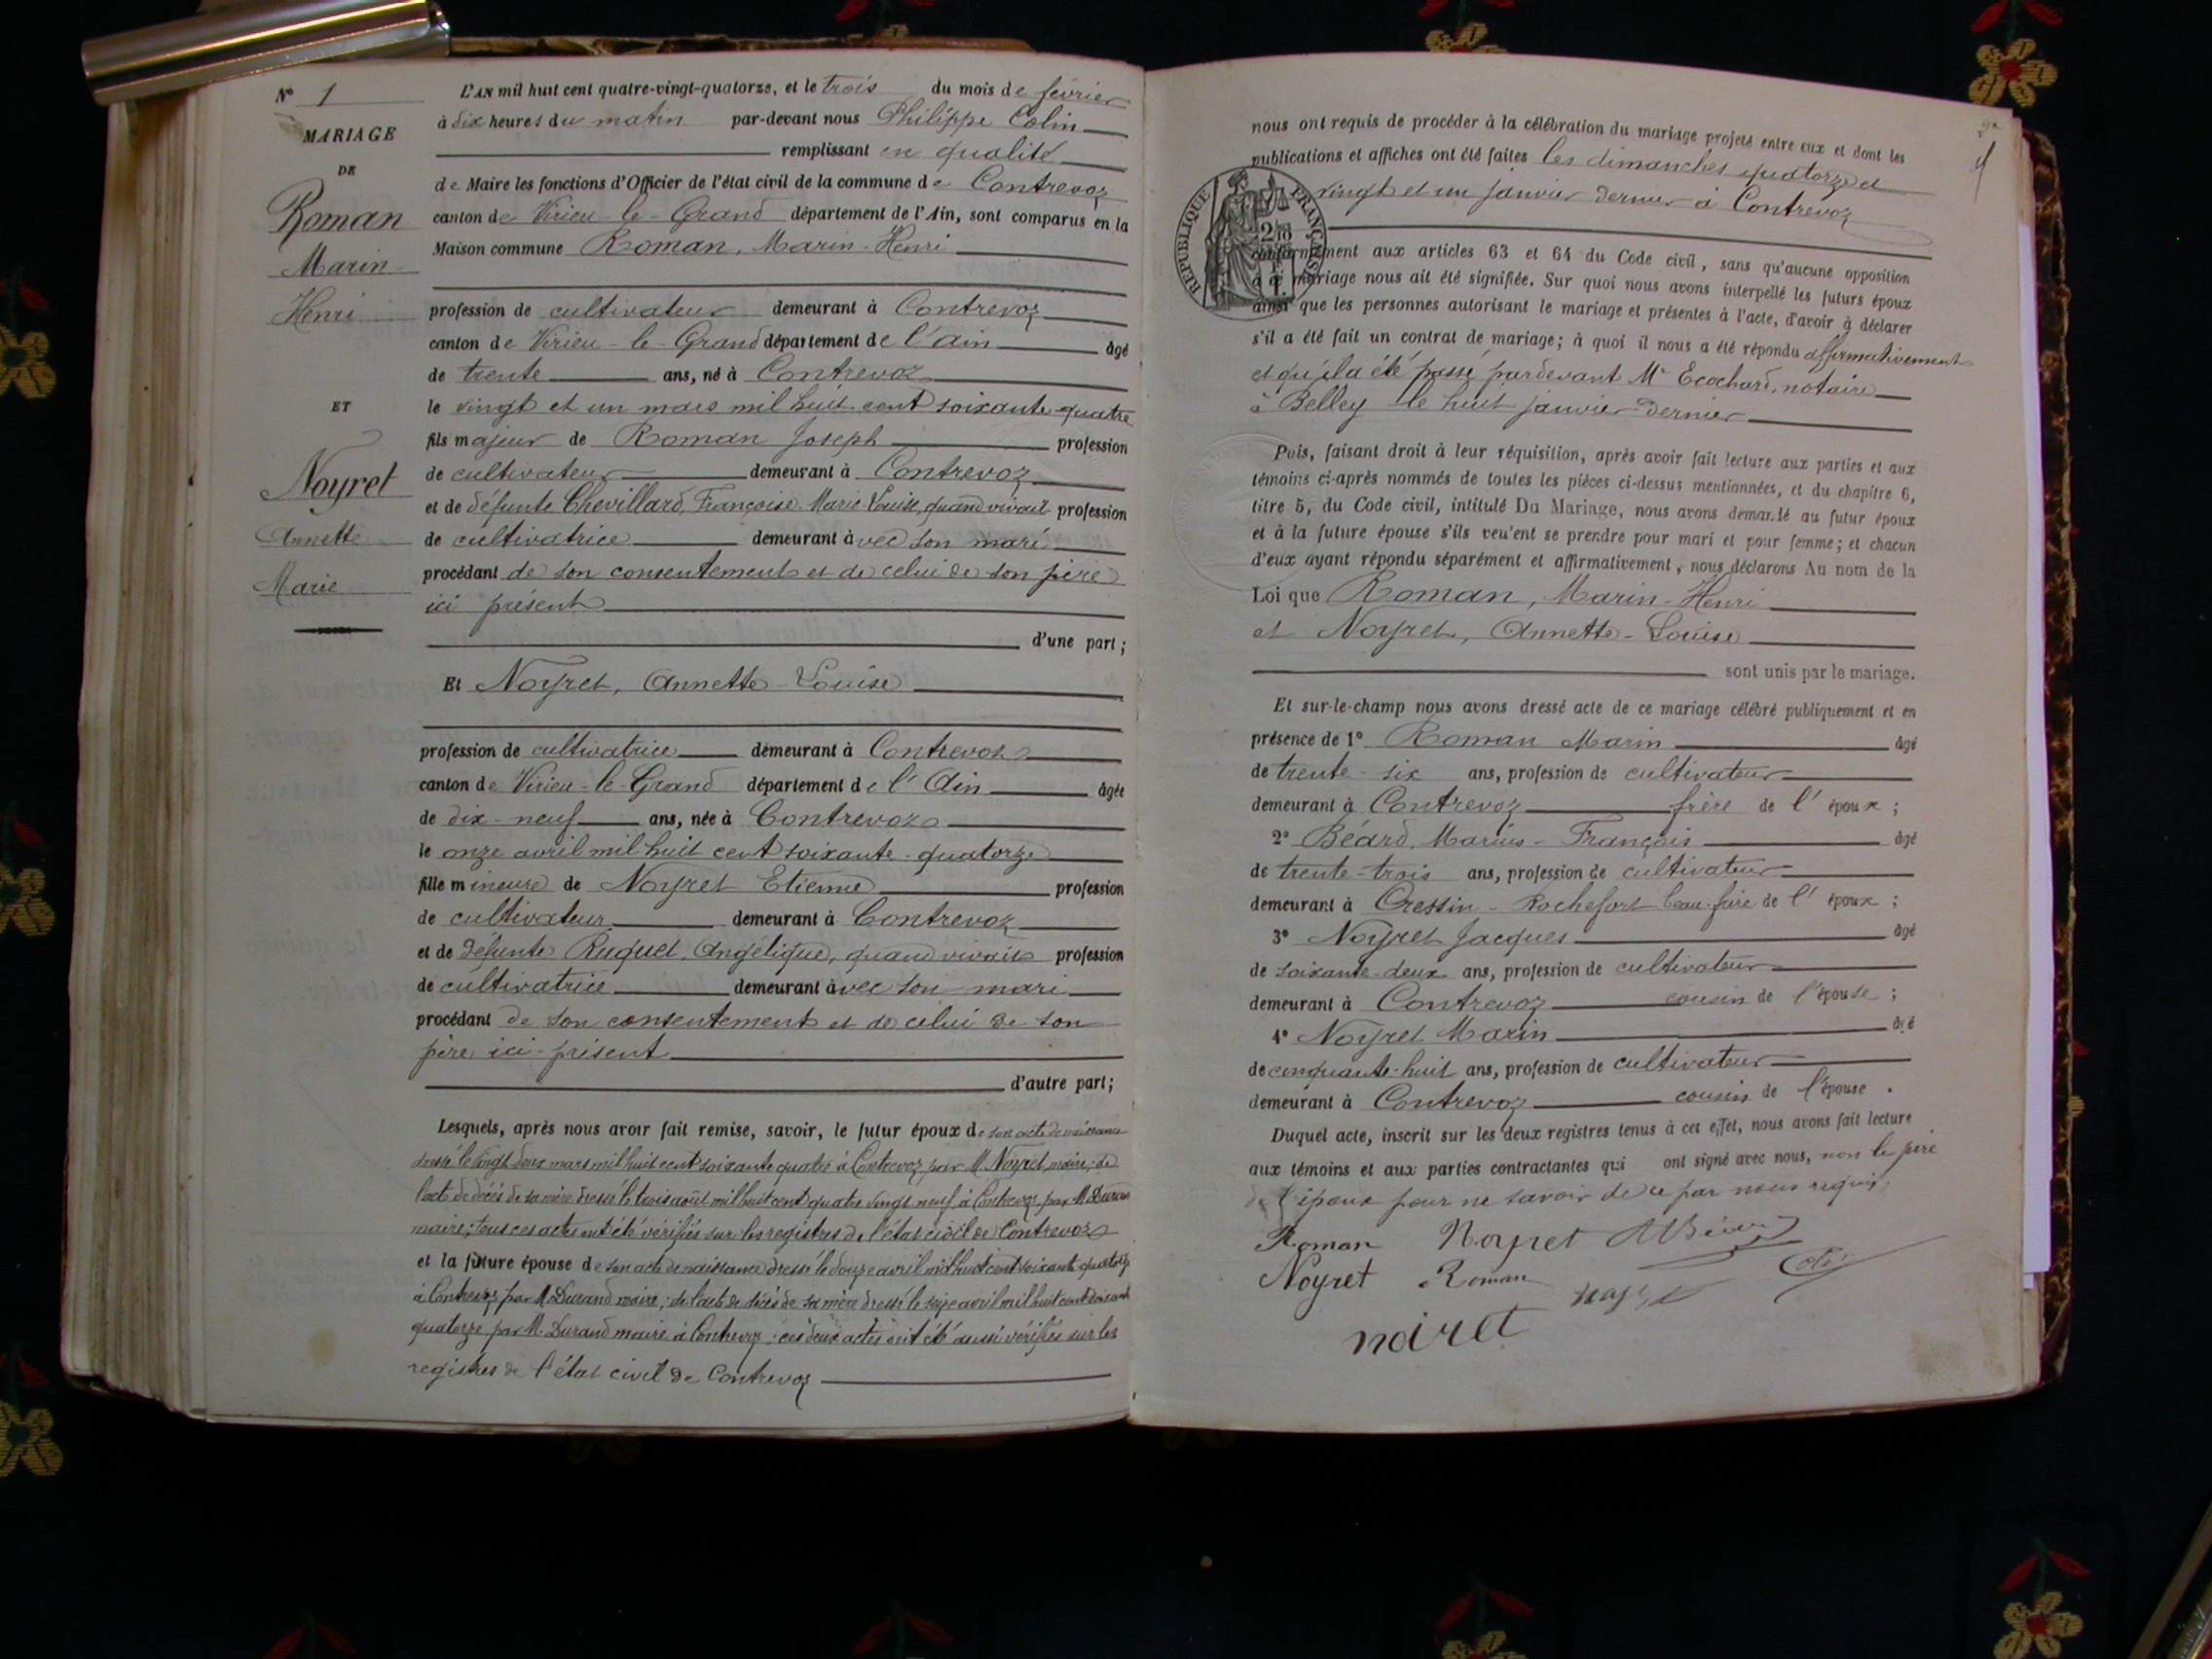 N° 1
MARIAGE
DE
Roman
Marin
Henri
ET
Noyret
Annette
Marie
L'AN mil huit cent quatre-vingt-quatorze, et le trois du mois de février
à dix heures du matin par-devant nous Philippe Colin
remplissant en qualité
de Maire les fonctions d'Officier de l'état civil de la commune de Contrevoz
canton de Virieu-le-Grand département de l'Ain, sont comparus en la
Maison commune Roman, Marin-Henri
profession de cultivateur demeurant à Contrevoz
canton de Virieu-le-Grand département de l'Ain âgé
de trente ans, né à Contrevoz
le vingt et un mars mil huit cent soixante quatre
fils majeur de Roman Joseph profession
de cultivateur demeurant à Contrevoz
et de défunte Chevillard, Françoise Marie Louise, quand vivait profession
de cultivatrice demeurant avec son mari
procédant de son consentement et de celui de son père
ici présent
d'une part;
Et Noyret, Annette-Louise
profession de cultivatrice demeurant à Contrevoz
canton de Virieu-le-Grand département de l'Ain âgée
de dix-neuf ans, née à Contrevoz
le onze avril mil huit cent soixante-quatorze
fille mineure de Noyret Etienne profession
de cultivateur demeurant à Contrevoz
et de défunte Ruquet, Angélique, quand vivait profession
de cultivatrice demeurant avec son mari
procédant de son consentement et de celui de son
père ici présent
d'autre part;
Lesquels, après nous avoir fait remise, savoir, le futur époux de son acte de naissance
dressé le vingt deux mars mil huit cent soixante quatre à Contrevoz par M. Noyret, maire; de
l'acte de décès de sa mère dressé le trois août mil huit cent quatre vingt neuf à Contrevoz par M. Durand
maire; tous ces actes ont été vérifiés sur les registres de l'état civil de Contrevoz
et la future épouse de son acte de naissance dressé le douze avril mil huit cent soixante quatorze
à Contrevoz par M. Durand maire; de l'acte de décès de sa mère dressé le seize avril mil huit cent soixante
quatorze par M. Durand maire à Contrevoz; ces deux actes ont été aussi vérifiés sur les
registres de l'état civil de Contrevoz
nous ont requis de procéder à la célébration du mariage projeté entre eux et dont les
publications et affiches ont été faites les dimanches quatorze et
vingt et un janvier dernier à Contrevoz
RÉPUBLIQUE FRANÇAISE
conformément aux articles 63 et 64 du Code civil, sans qu'aucune opposition
à ce mariage nous ait été signifiée. Sur quoi nous avons interpellé les futurs époux
ainsi que les personnes autorisant le mariage et présentes à l'acte, d'avoir à déclarer
s'il a été fait un contrat de mariage; à quoi il nous a été répondu affirmativement
et qu'il a été passé pardevant Me Ecochard, notaire
à Belley le huit janvier dernier
Puis, faisant droit à leur réquisition, après avoir fait lecture aux parties et aux
témoins ci-après nommés de toutes les pièces ci-dessus mentionnées, et du chapitre 6,
titre 5, du Code civil, intitulé Du Mariage, nous avons demandé au futur époux
et à la future épouse s'ils veulent se prendre pour mari et pour femme; et chacun
d'eux ayant répondu séparément et affirmativement, nous déclarons Au nom de la
Loi que Roman, Marin-Henri
et Noyret, Annette-Louise
sont unis par le mariage.
Et sur-le-champ nous avons dressé acte de ce mariage célébré publiquement et en
présence de 1° Roman Marin âgé
de trente-six ans, profession de cultivateur
demeurant à Contrevoz frère de l'époux;
2° Béard, Marius-François âgé
de trente-trois ans, profession de cultivateur
demeurant à Cressin-Rochefort beau-frère de l'époux;
3° Noyret Jacques âgé
de soixante-deux ans, profession de cultivateur
demeurant à Contrevoz cousin de l'épouse;
4° Noyret Marin âgé
de cinquante-huit ans, profession de cultivateur
demeurant à Contrevoz cousin de l'épouse.
Duquel acte, inscrit sur les deux registres tenus à cet effet, nous avons fait lecture
aux témoins et aux parties contractantes qui ont signé avec nous, non le père
de l'époux pour ne savoir de ce par nous requis.
Roman Noyret MBéard
Noyret Roman Colin
noiret